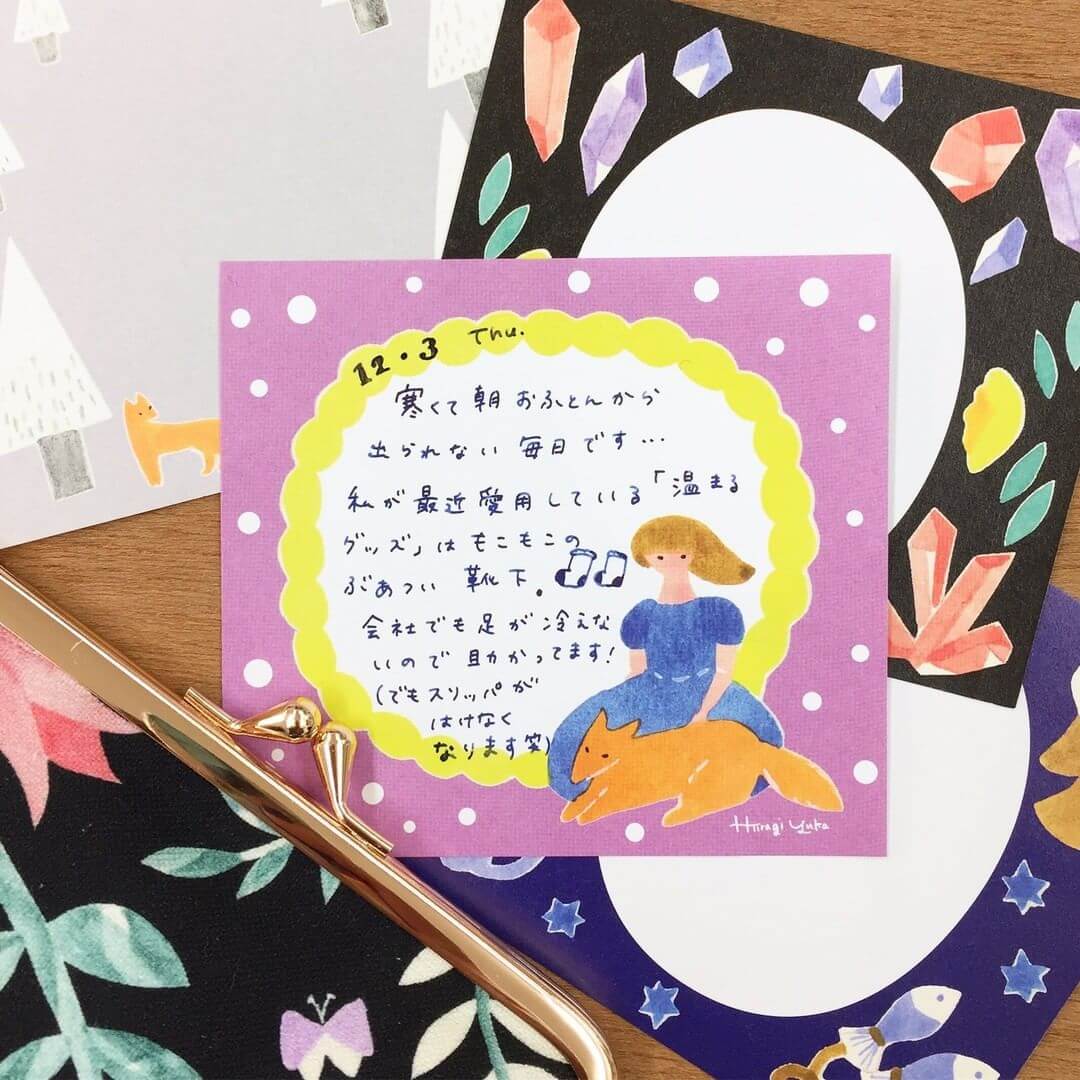 12・3 Thu.
寒くて朝おふとんから
出られない毎日です…
私が最近愛用している「温まる
グッズ」はもこもこの
ぶあつい靴下.
会社でも足が冷えな
いので助かってます!
(でもスリッパが
はけなく
なります笑)
Hiiragi Yuka